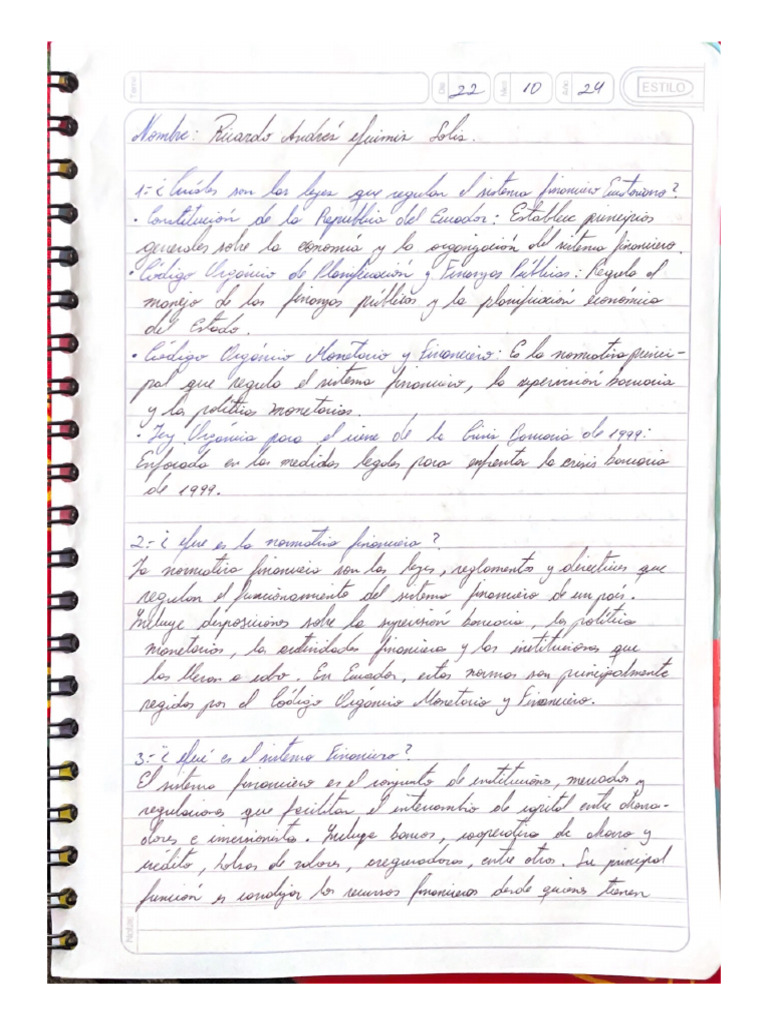 Tema Día 22 Mes 10 Año 24 ESTILO
Nombre: Ricardo Andrés Solis.
1-¿Cuáles son las leyes que regulan el sistema financiero Ecuatoriano?
• Constitución de la República del Ecuador: Establece principios
generales sobre la economía y la organización del sistema financiero.
• Código Orgánico de Planificación y Finanzas Públicas: Regula el
manejo de las finanzas públicas y la planificación económica
del Estado.
• Código Orgánico Monetario y Financiero: Es la normativa princi-
pal que regula el sistema financiero, la supervisión bancaria
y las políticas monetarias.
• Ley Orgánica para el cierre de la Crisis Bancaria de 1999:
Enfocada en las medidas legales para enfrentar la crisis bancaria
de 1999.
2-¿Que es la normativa financiera?
La normativa financiera son las leyes, reglamentos y directivas que
regulan el funcionamiento del sistema financiero de un país.
Incluye disposiciones sobre la supervisión bancaria, las política
monetarias, las actividades financiera y las instituciones que
las llevan a cabo. En Ecuador, estas normas son principalmente
regidas por el Código Orgánico Monetario y Financiero.
3-¿Qué es el sistema Financiero?
El sistema financiero es el conjunto de instituciones, mercados y
regulaciones que facilitan el intercambio de capital entre ahorra-
dores e inversionista. Incluye bancos, cooperativa de ahorro y
crédito, bolsas de valores, aseguradoras, entre otros. Su principal
función es canalizar los recursos financieros desde quienes tienen
Notas